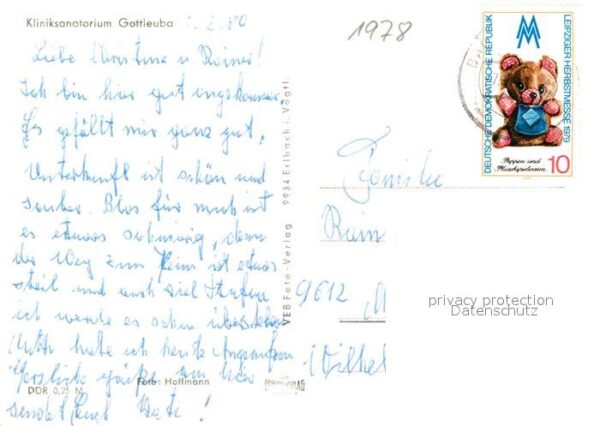 Kliniksanatorium Gottleuba
.2.80
Liebe Christina u Rainer!
Ich bin hier gut angekommen,
Es gefällt mir ganz gut,
Unterkunft ist schön und
sauber. Blos für mich ist
es etwas schwierig, denn
der Weg zum Heim ist etwas
steil und auch viel Stufen
ich werde es schon überstehen
Mutti habe ich heute angerufen
Herzliche Grüße von hier
sendet Euch
DDR 0,25 M
Foto: Hoffmann
VEB Foto-Verlag 9934 Erlbach i. Vogtl.
1978
DEUTSCHE DEMOKRATISCHE REPUBLIK
LEIPZIGER HERBSTMESSE 1979
Puppen- und
Plüschspielwaren
10
Familie
Rain
9612 M
Wilhel
privacy protection
Datenschutz